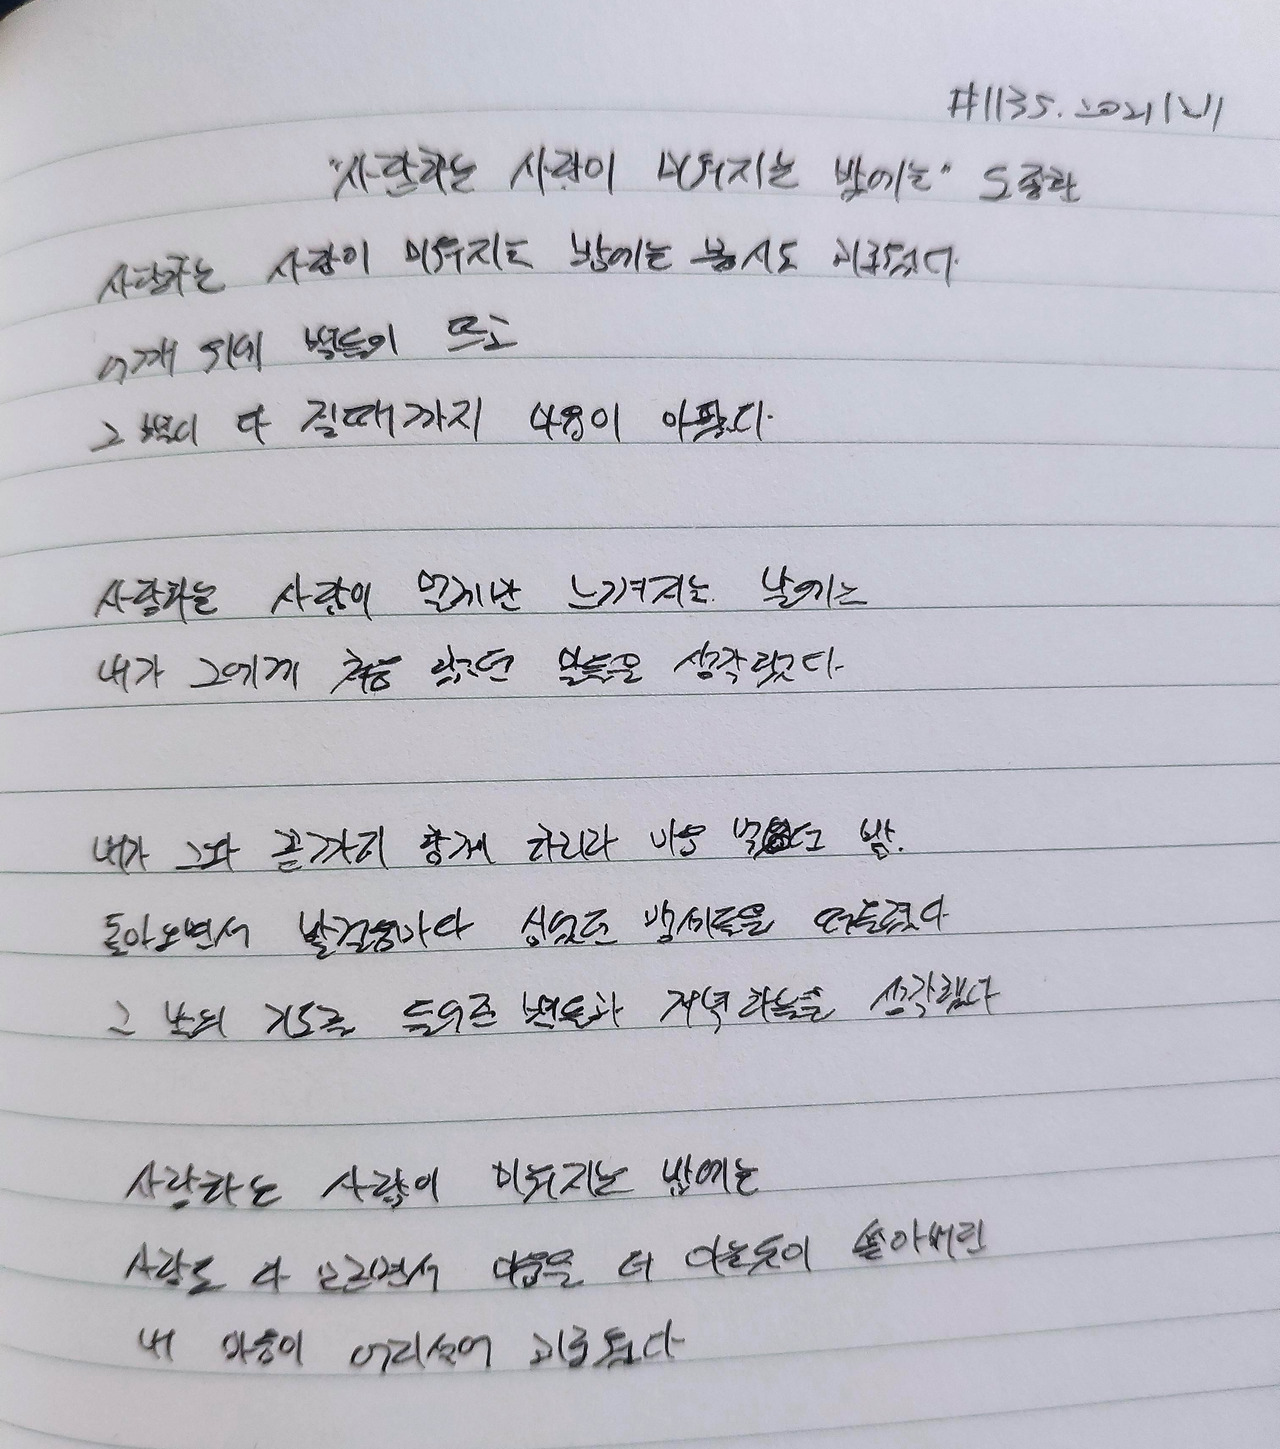 #1135. 20211211
"사랑하는 사람이 미워지는 밤에는" 도종환
사랑하는 사람이 미워지는 밤에는 몹시도 괴로웠다.
어깨 위에 별들이 뜨고
그 별이 다 질때까지 마음이 아팠다.
사랑하는 사람이 멀게만 느껴지는 날에는
내가 그에게 처음 했던 말들을 생각했다.
내가 그와 끝까지 함께 하리라 마음 먹던 밤.
돌아오면서 발걸음마다 심었던 맹세들을 떠올렸다
그 날의 기도를 들어준 별들과 저녁하늘을 생각했다
사랑하는 사람이 미워지는 밤에는
사랑도 다 모르면서 미움을 더 아는듯이 쏟아버린
내 마음이 어리석어 괴로웠다